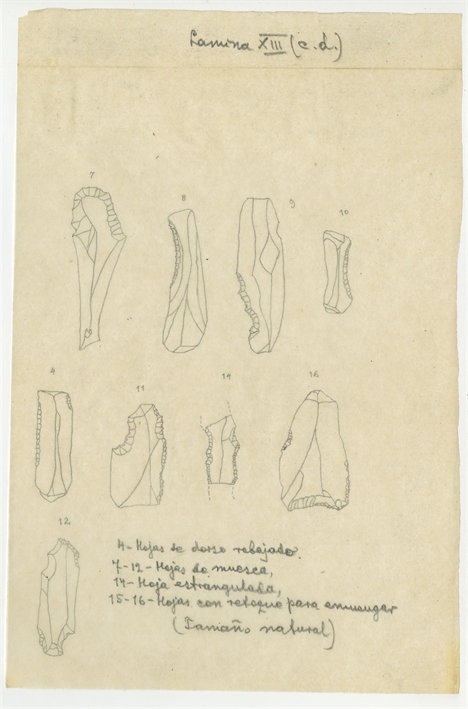 Lamina XIII (c.d.)
7
8
9
10
4
11
14
16
12
4-Hojas de dorso rebajado.
7-12-Hojas de muesca,
14-Hoja estrangulada,
15-16-Hojas con retoque para enmangar
(Tamaño natural)